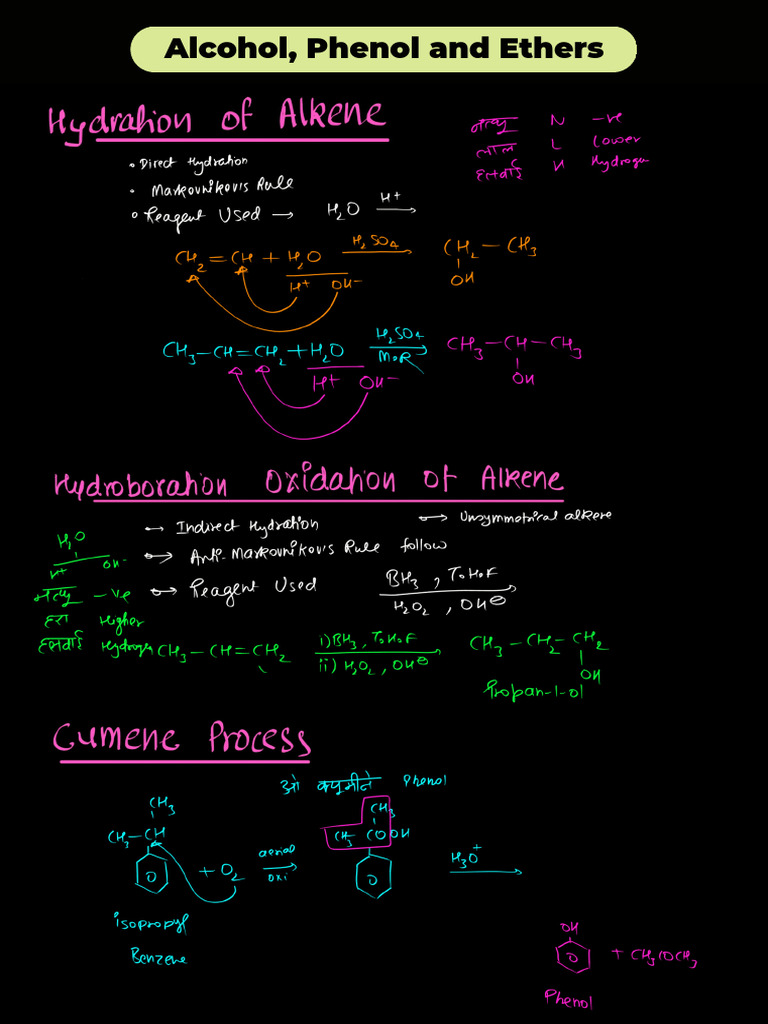 Alcohol, Phenol and Ethers
Hydration of Alkene
N -ve
लाल L Lower
हलवाई H Hydrogen
• Direct Hydration
• Markovnikov's Rule
• Reagent Used → H2O H+
CH2=CH + H2O H2SO4 CH2-CH3
H+ OH- OH
CH3-CH=CH2 + H2O H2SO4 M.R CH3-CH-CH3
H+ OH- OH
Hydroboration Oxidation of Alkene
→ Indirect Hydration → Unsymmetrical alkene
H2O
H+ OH-
→ Anti-Markovnikov's Rule follow
→ Reagent Used BH3, T.H.F
H2O2, OH⊖
-ve
हरा Higher
हलवाई Hydrogen
CH3-CH=CH2 i) BH3, T.H.F CH3-CH2-CH2
ii) H2O2, OH⊖ OH
Propan-1-ol
Cumene Process
ओ क्यूमीने Phenol
CH3 CH3
CH3-CH CH3-COOH
+ O2 aerial oxi H3O+
isopropyl
Benzene
OH
+ CH3COCH3
Phenol